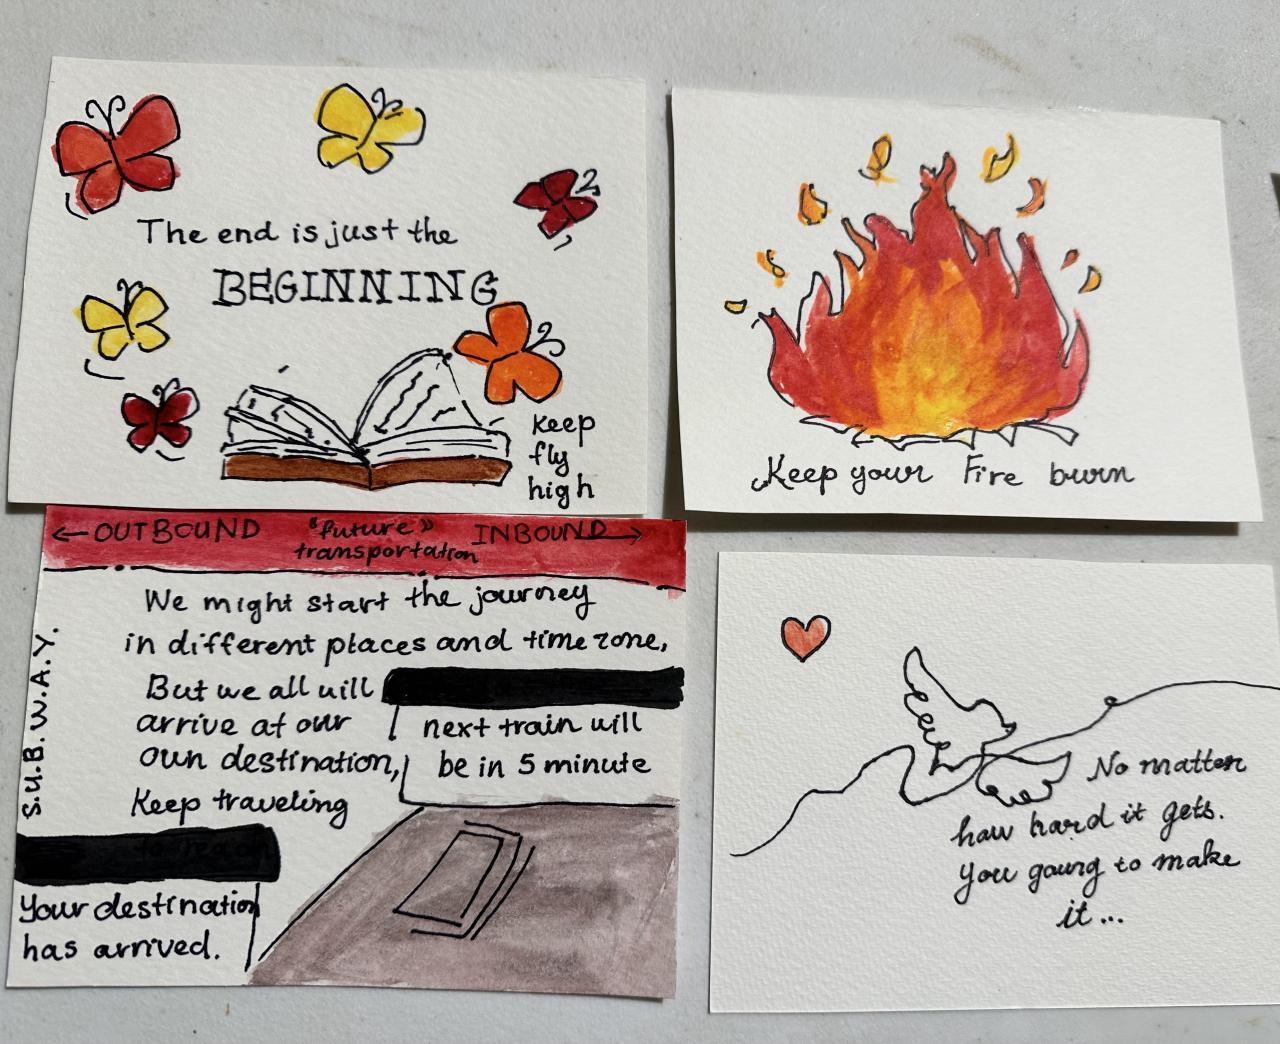 The end is just the
BEGINNING
keep
fly
high
Keep your Fire burn
← OUTBOUND "future" INBOUND →
transportation
S.U.B.W.A.Y.
We might start the journey
in different places and time zone,
But we all will
arrive at our
own destination,
Keep traveling
to reach
next train will
be in 5 minute
Your destination
has arrived.
No matter
how hard it gets.
You going to make
it...